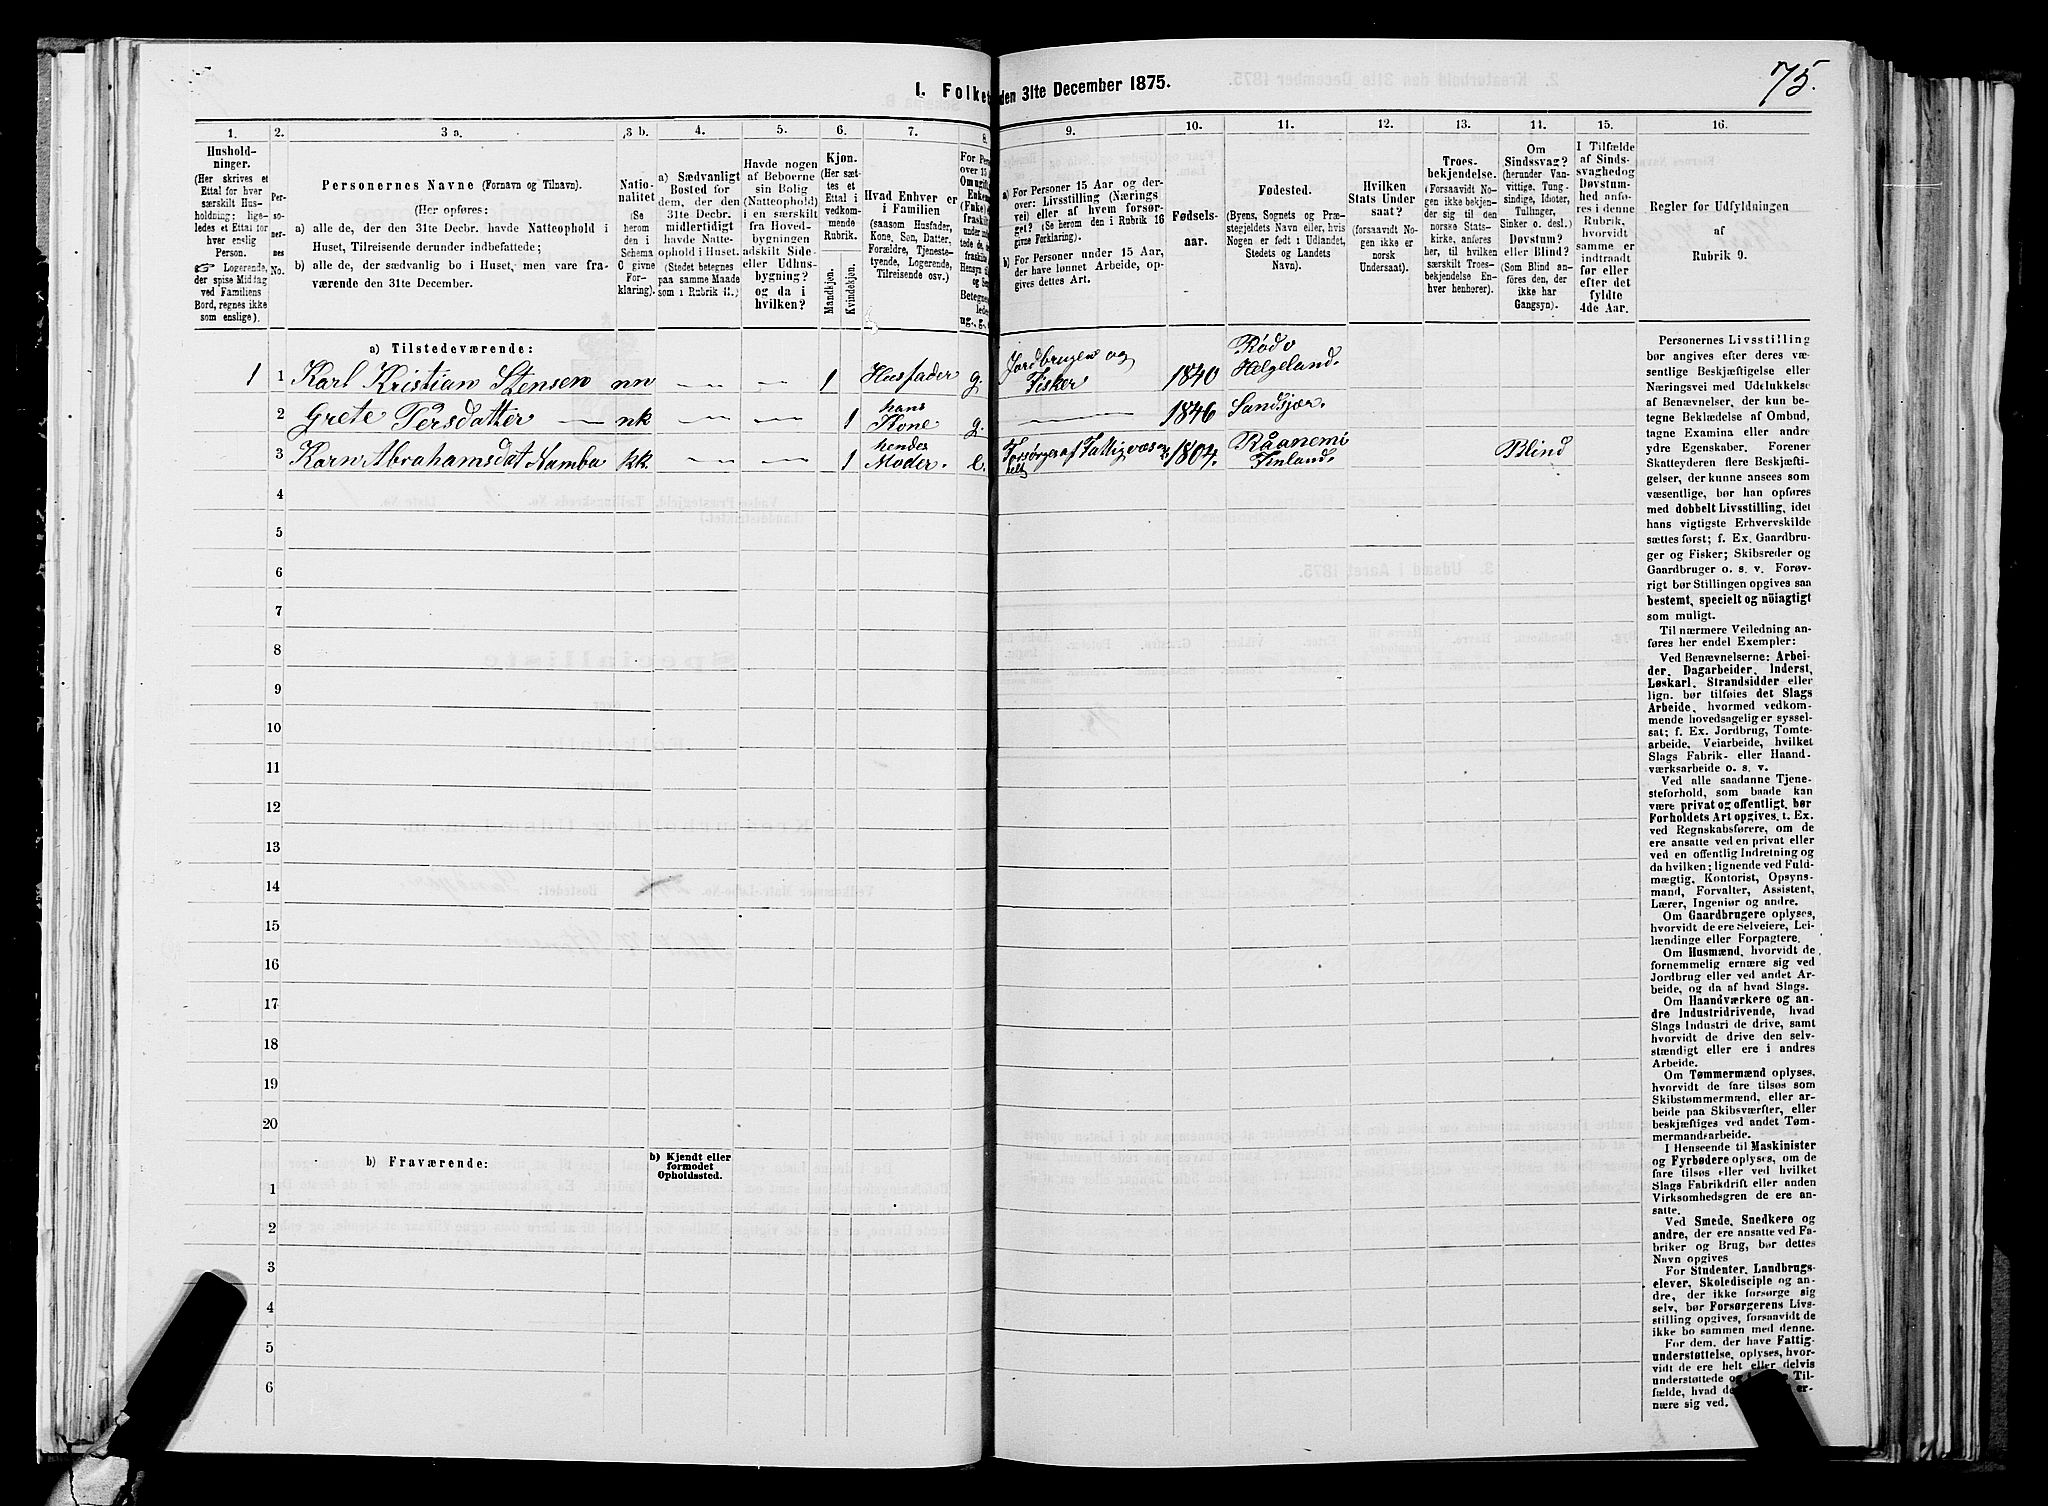 75.
I. Folket
den 31te December 1875.
1.
2.
3 a.
3 b.
4.
5.
6.
7.
8.
9.
10.
11.
12.
13.
14.
15.
16.
Hushold-
ninger.
(Her skrives et
Ettal for hver
særskilt Hus-
holdning; lige-
ledes et Ettal for
hver enslig
Person.
☞ Logerende,
der spise Middag
ved Familiens
Bord, regnes ikke
som enslige).
Per-
so-
ner-
nes
No.
Personernes Navne (Fornavn og Tilnavn).
(Her opføres:
a) alle de, der den 31te Decbr. havde Natteophold i
Huset, Tilreisende derunder indbefattede;
b) alle de, der sædvanlig bo i Huset, men vare fra-
værende den 31te December.
Natio-
nalitet
(Se
herom
den i
Schema
C givne
For-
klaring).
a) Sædvanligt
Bosted for
dem, der den
31te Decbr.
midlertidigt
havde Natte-
ophold i Huset.
(Stedet betegnes
paa samme Maade
som i Rubrik 11.)
Havde nogen
af Beboerne
sin Bolig
(Natteophold)
i en særskilt
fra Hoved-
bygningen
adskilt Side-
eller Udhus-
bygning?
og da i
hvilken?
Kjøn.
(Her sæt-
tes et
Ettal i
vedkom-
mende
Rubrik.
Mandkjøn.
Kvindekjøn.
Hvad Enhver er
i Familien
(saasom Husfader,
Kone, Søn, Datter,
Forældre, Tjeneste-
tyende, Logerende,
Tilreisende osv.)
a) For Personer 15 Aar og der-
over: Livsstilling (Nærings
vei) eller af hvem forsør-
get? (Se herom den i Rubrik 16
givne Forklaring).
b) For Personer under 15 Aar,
der have lønnet Arbeide, op-
gives dettes Art.
Fødsels-
aar.
Fødested.
(Byens, Sognets og Præ-
stegjeldets Navn eller, hvis
Nogen er født i Udlandet,
Stedets og Landets
Navn).
Hvilken
Stats Under
saat?
(forsaavidt No-
gen ikke er
norsk
Undersaat).
Troes-
bekjendelse.
(Forsaavidt No-
gen ikke bekjen-
der sig til den
norske Stats-
kirke, anføres
her, til hvilken
særskilt Troes-
bekjendelse En-
hver henhører).
Om
Sindssvag?
(herunder Van-
vittige, Tung-
sindige, Idioter,
Tullinger,
Sinker o. desl.)
Døvstum?
eller Blind?
(Som Blind an-
føres den, der
ikke har
Gangsyn).
I Tilfælde
af Sinds-
svaghed og
Døvstum-
hed anfø-
res i denne
Rubrik.
hvorvidt
samme er
indtraadt
før eller
efter det
fyldte
4de Aar.
Regler for Udfyldningen
af
Rubrik 9.
a) Tilstedeværende:
1 1 Karl Kristian Stensen nn 1 Husfader g. Jordbruger og Fisker 1840 Rødø Helgeland.
2 Grete Persdatter nk 1 hans Kone g. 1846 Sandsjær.
3 Karn Abrahamsdat Namba kk. 1 hendes Moder. e. Forsørges af Fattigvæsen helt 1804. Råanemi Finland. Blind
4
5
6
7
8
9
10
11
12
13
14
15
16
17
18
19
20
b) Fraværende:
b) Kjendt eller
formodet
Opholdssted.
1
2
3
4
5
6
Personernes Livsstilling
bør angives efter deres væ-
sentlige Beskjæftigelse eller
Næringsvei med Udelukkelse
af Benævnelser, der kun be-
tegne Beklædelse af Ombud,
tagne Examina eller andre
ydre Egenskaber. Forener
Skatteyderen flere Beskjæfti-
gelser, der kunne ansees som
væsentlige, bør han opføres
med dobbelt Livsstilling, idet
hans vigtigste Erhvervskilde
sættes først; f. Ex. Gaardbru-
ger og Fisker; Skibsreder og
Gaardbruger o. s. v. Forøv-
rigt bør Stillingen opgives saa
bestemt, specielt og nöiagtigt
som muligt.
Til nærmere Veiledning an-
føres her endel Exempler:
Ved Benævnelserne: Arbei-
der, Dagarbeider, Inderst,
Løskarl, Strandsidder eller
lign. bør tilføies det Slags
Arbeide, hvormed vedkom-
mende hovedsagelig er syssel-
sat; f. Ex. Jordbrug, Tomte-
arbeide, Veiarbeide, hvilket
Slags Fabrik- eller Haand-
værksarbeide o. s. v.
Ved alle saadanne Tjene-
steforhold, som baade kan
være privat og offentligt, bør
Forholdets Art opgives, t. Ex.
ved Regnskabsførere, om de
ere ansatte ved en privat eller
ved en offentlig Indretning og
da hvilken; lignende ved Fuld-
mægtig, Kontorist, Opsyns-
mand, Forvalter, Assistent,
Lærer, Ingeniør og andre.
Om Gaardbrugere oplyses,
hvorvidt de ere Selveiere, Lei-
lændinge eller Forpagtere.
Om Husmænd, hvorvidt de
fornemmelig ernære sig ved
Jordbrug eller ved andet Ar-
beide, og da af hvad Slags.
Om Haandværkere og an-
dre Industridrivende, hvad
Slags Industri de drive, samt
hvorvidt de drive den selv-
stændigt eller ere i andres
Arbeide.
Om Tømmermænd oplyses,
hvorvidt de fare tilsøs som
Skibstømmermænd, eller ar-
beide paa Skibsværfter, eller
beskjæftiges ved andet Tøm-
mermandsarbeide.
I Henseende til Maskinister
og Fyrbødere oplyses, om de
fare tilsøs eller ved hvilket
Slags Fabrikdrift eller anden
Virksomhedsgren de ere an-
satte.
Ved Smede, Snedkere og
andre, der ere ansatte ved Fa-
briker og Brug, bør dettes
Navn opgives
For Studenter, Landbrugs-
elever, Skoledisciple og an-
dre, der ikke forsørge sig
selv, bør Forsørgerens Livs-
stilling opgives, forsaavidt de
ikke bo sammen med denne.
For dem, der have Fattig-
understøttelse, oplyses, hvor-
vidt de ere helt eller delvis
understøttede
fælde, hvad
nære sig ved.